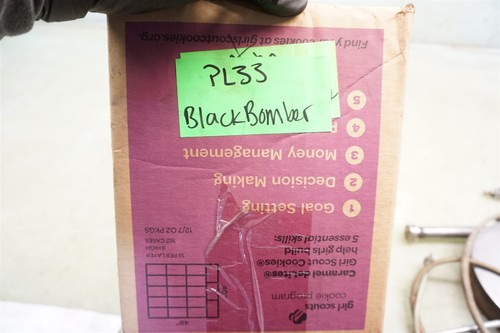 PL33
BlackBomber
girl scouts
cookie program
Caramel deLites®
Girl Scout Cookies®
help girls build
5 essential skills:
1 Goal Setting
2 Decision Making
3 Money Management
4
5
Find your cookies at girlscoutcookies.org.
48"
PER LAYER
HIGH
CASES
12/7 OZ PKGS